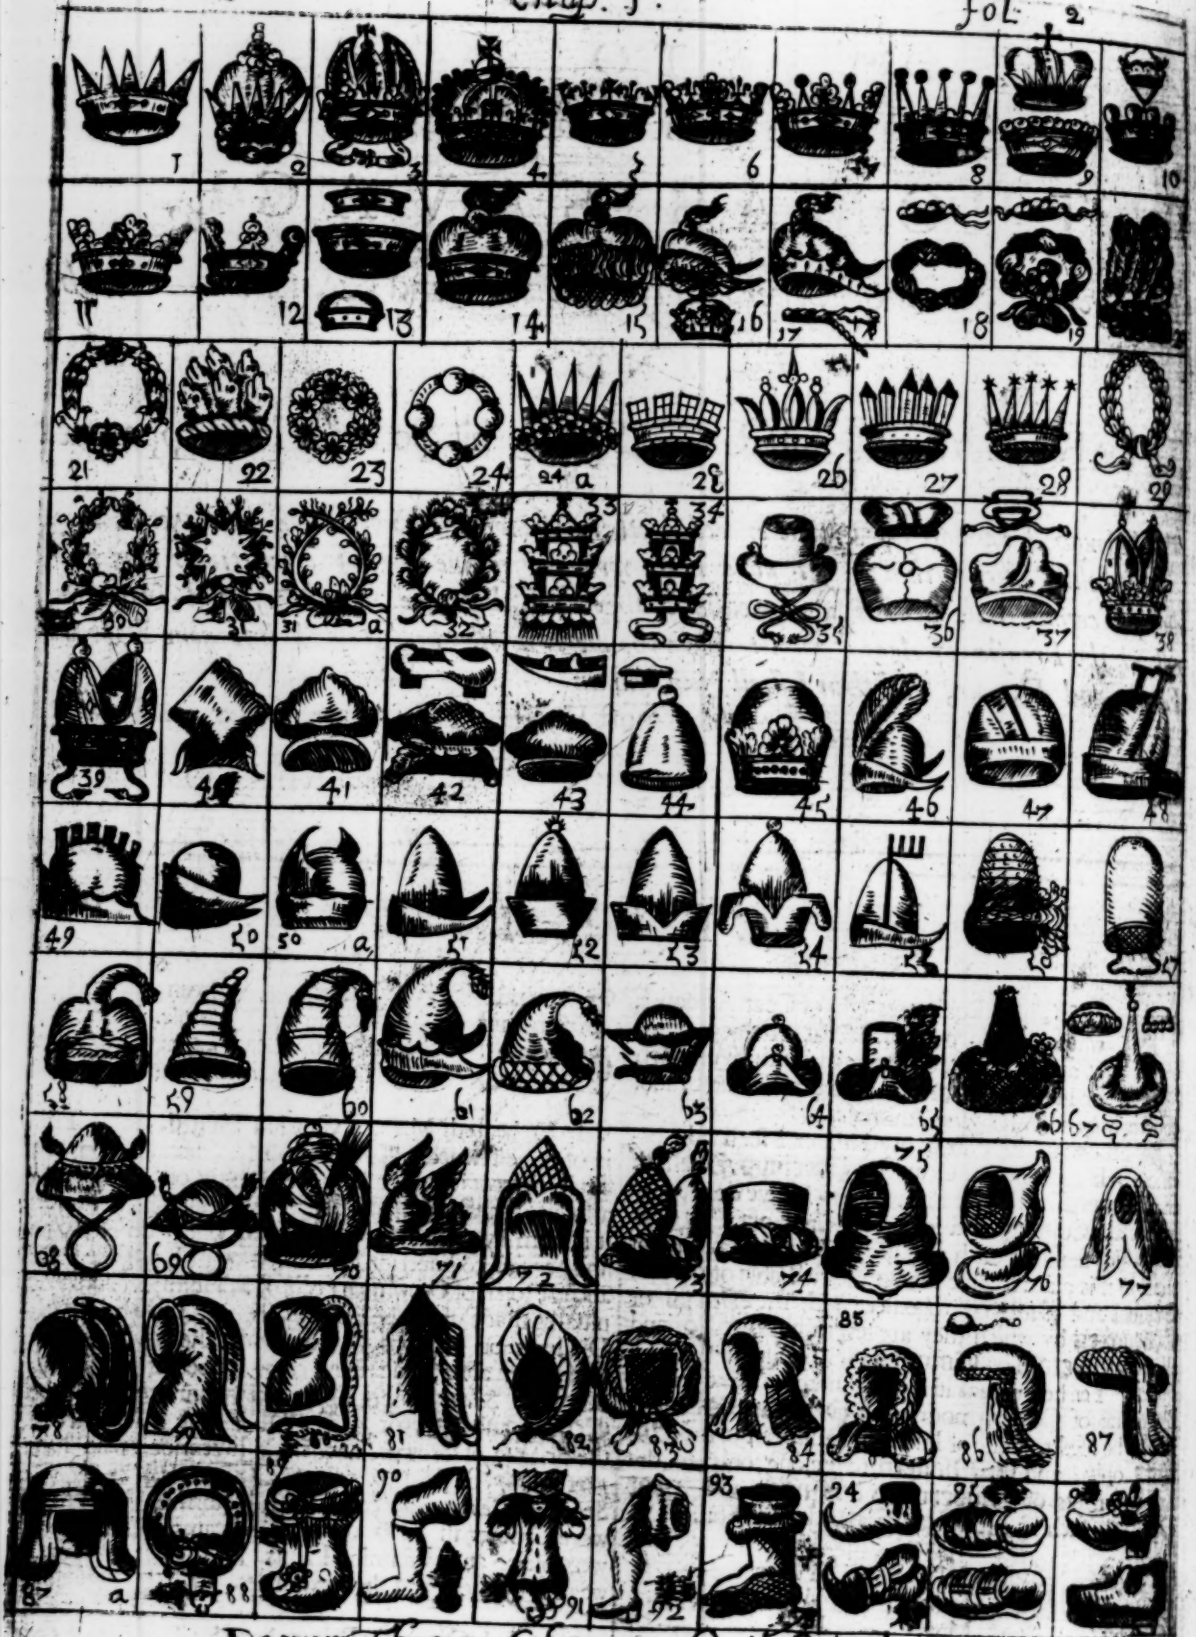 Chap. 1. fol. 2
1 2 3 4 5 6 7 8 9 10
11 12 13 14 15 16 17 18 19
21 22 23 24 24 a 25 26 27 28 29
30 31 31 a 32 33 34 35 36 37 38
39 40 41 42 43 44 45 46 47 48
49 50 50 a 51 52 53 54 55 56 57
58 59 60 61 62 63 64 65 66 67
68 69 70 71 72 73 74 75 76 77
78 79 80 81 82 83 84 85 86 87
87 a 88 89 90 91 92 93 94 95